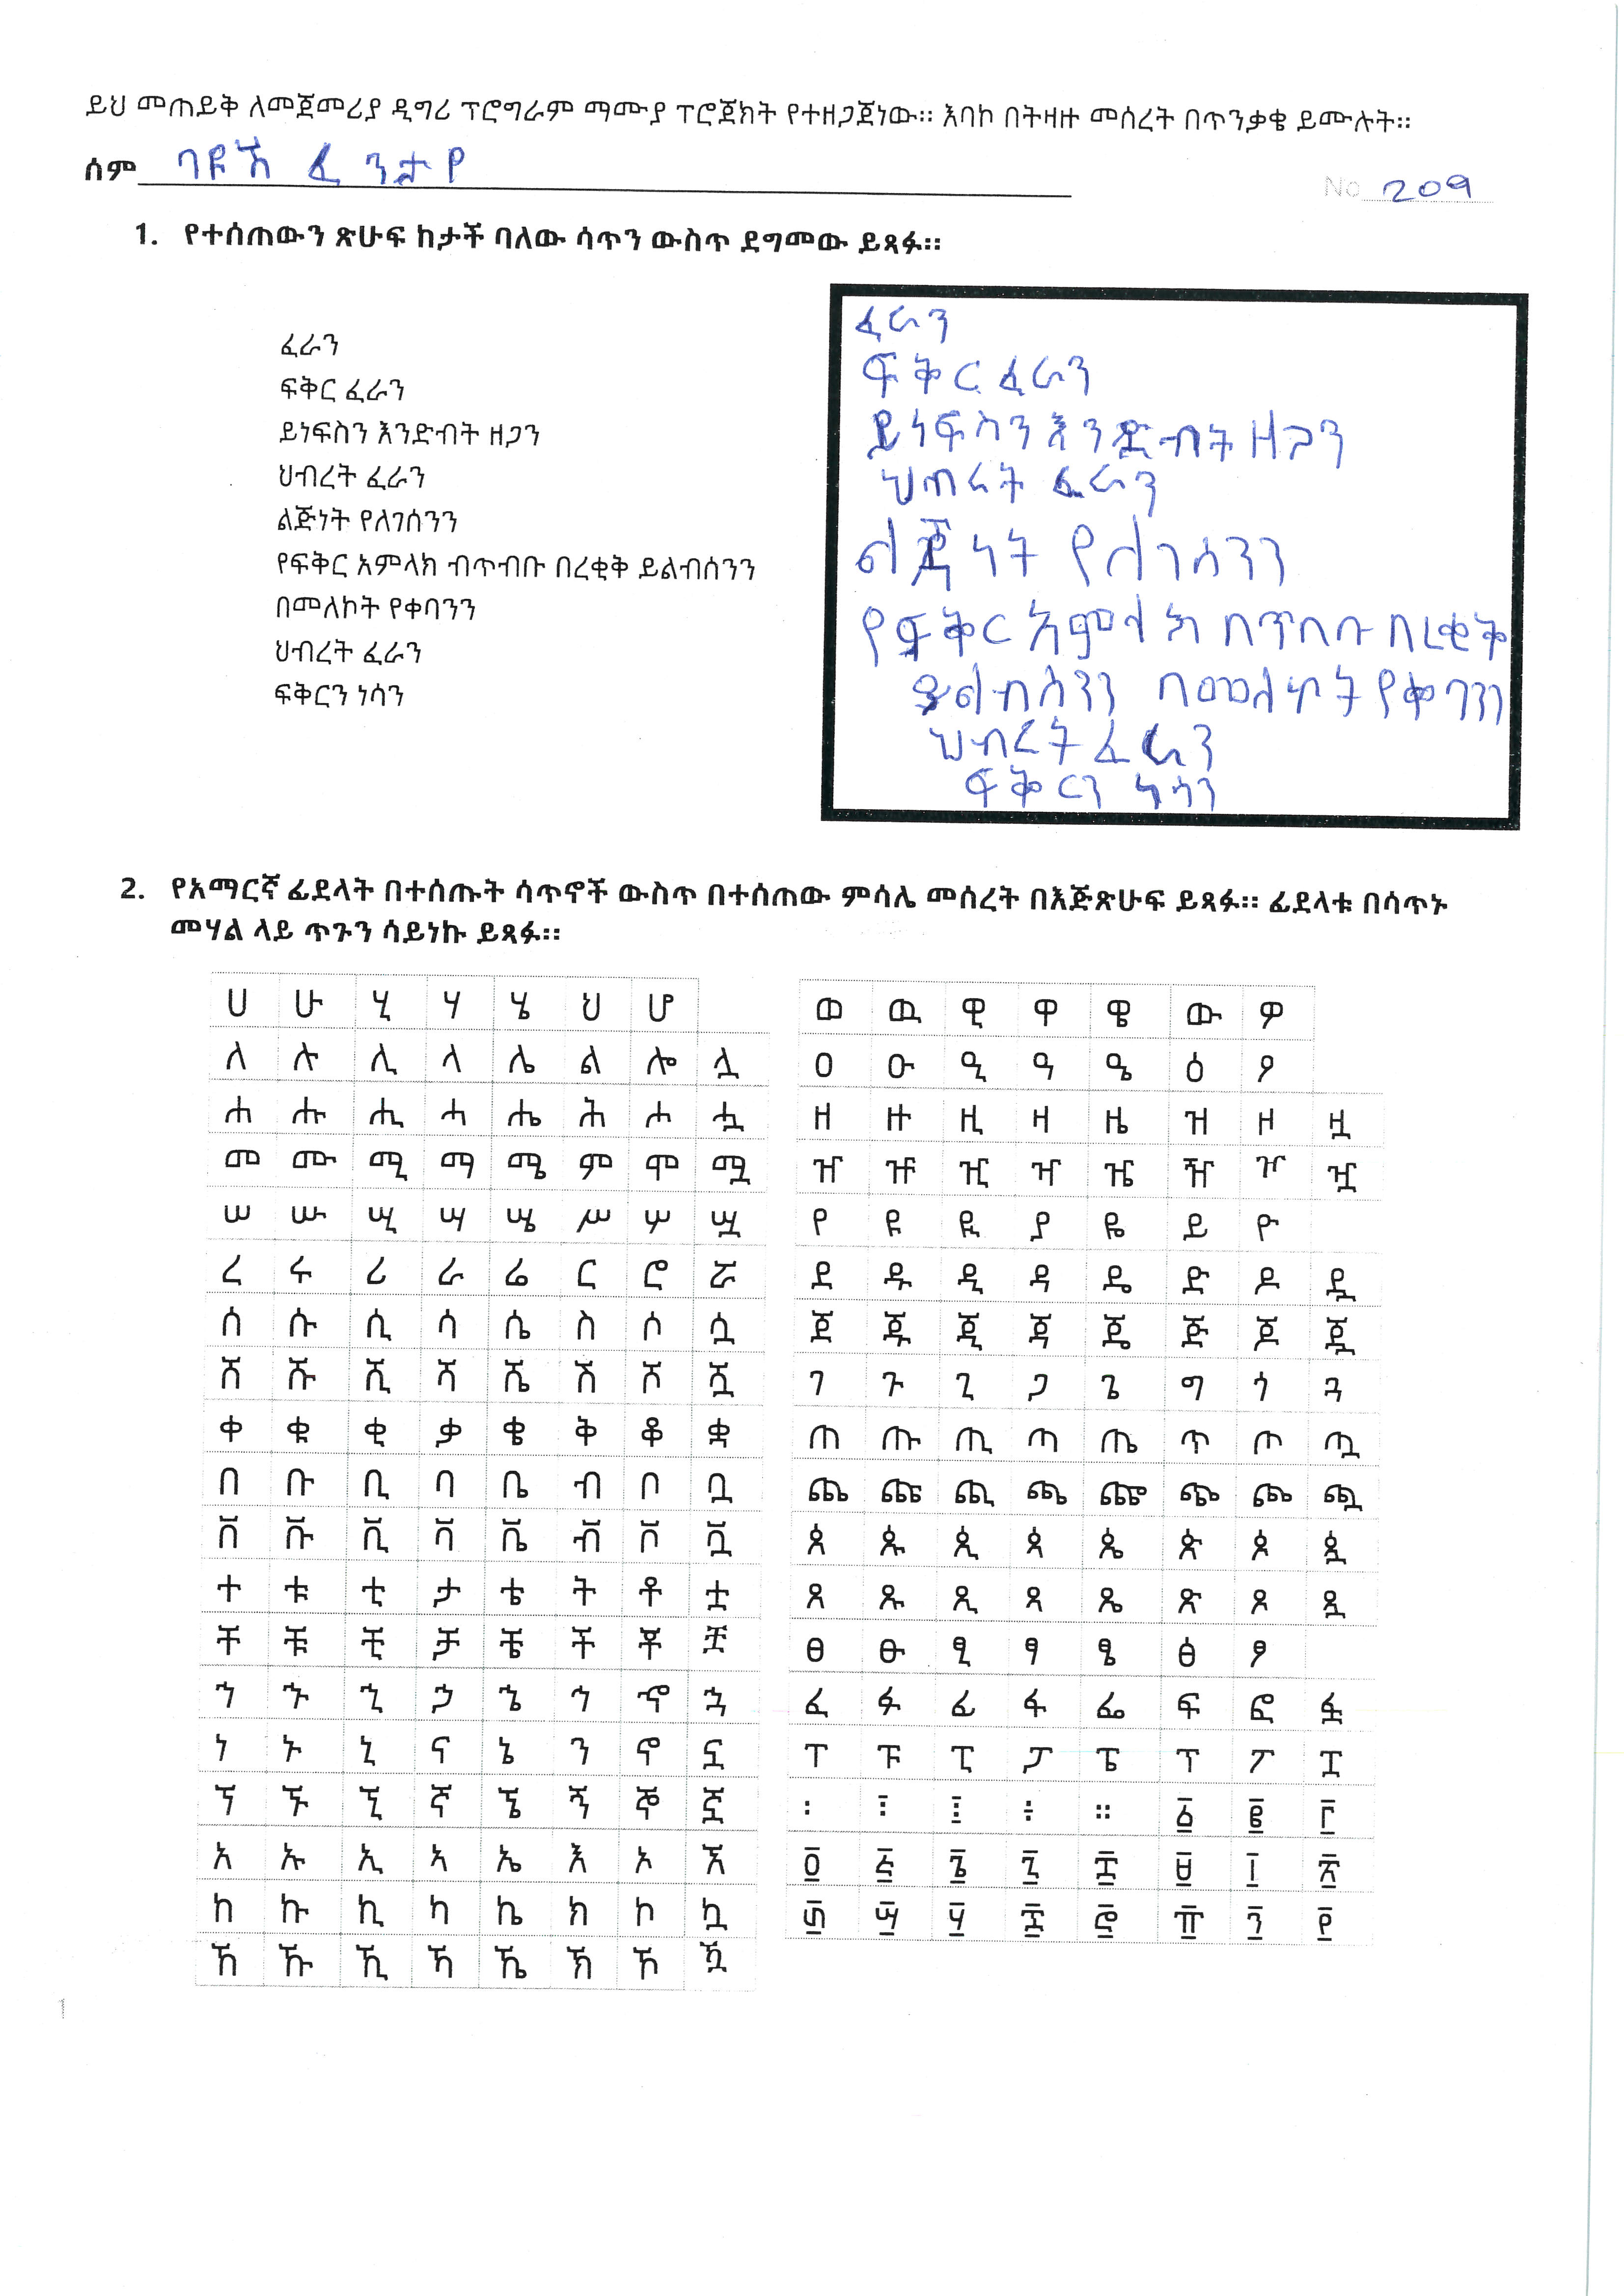 ይህ መጠይቅ ለመጀመሪያ ዲግሪ ፕሮግራም ማሙያ ፕሮጀክት የተዘጋጀነው። እባኮ በትዛዙ መሰረት በጥንቃቄ ይሙሉት።
ሰም ባዩሽ ፈንታየ No 209
1. የተሰጠውን ጽሁፍ ከታች ባለው ሳጥን ውስጥ ደግመው ይጻፉ።
ፈራን
ፍቅር ፈራን
ይነፍስን እንድብት ዘጋን
ህብረት ፈራን
ልጅነት የለገሰንን
የፍቅር አምላክ ብጥብቡ በረቂቅ ይልብሰንን
በመለኮት የቀባንን
ህብረት ፈራን
ፍቅርን ነሳን
ፈራን
ፍቅር ፈራን
ይነፍስን እንድብት ዘጋን
ህጠረት ፈራን
ልጅነት የለገሳንን
የፍቅር አምላክ በጥበቡ በረቂቅ
ይልብስንን በመለኮት የቀባንን
ህብረት ፈራን
ፍቅርን ነሳን
2. የአማርኛ ፊደላት በተሰጡት ሳጥኖች ውስጥ በተሰጠው ምሳሌ መሰረት በእጅጽሁፍ ይጻፉ። ፊደላቱ በሳጥኑ
መሃል ላይ ጥጉን ሳይነኩ ይጻፉ።
ሀ ሁ ሂ ሃ ሄ ህ ሆ
ለ ሉ ሊ ላ ሌ ል ሎ ሏ
ሐ ሑ ሒ ሓ ሔ ሕ ሖ ሗ
መ ሙ ሚ ማ ሜ ም ሞ ሟ
ሠ ሡ ሢ ሣ ሤ ሥ ሦ ሧ
ረ ሩ ሪ ራ ሬ ር ሮ ሯ
ሰ ሱ ሲ ሳ ሴ ስ ሶ ሷ
ሸ ሹ ሺ ሻ ሼ ሽ ሾ ሿ
ቀ ቁ ቂ ቃ ቄ ቅ ቆ ቋ
በ ቡ ቢ ባ ቤ ብ ቦ ቧ
ቨ ቩ ቪ ቫ ቬ ቭ ቮ ቯ
ተ ቱ ቲ ታ ቴ ት ቶ ቷ
ቸ ቹ ቺ ቻ ቼ ች ቾ ቿ
ኀ ኁ ኂ ኃ ኄ ኅ ኆ ኋ
ነ ኑ ኒ ና ኔ ን ኖ ኗ
ኘ ኙ ኚ ኛ ኜ ኝ ኞ ኟ
አ ኡ ኢ ኣ ኤ እ ኦ ኧ
ከ ኩ ኪ ካ ኬ ክ ኮ ኳ
ኸ ኹ ኺ ኻ ኼ ኽ ኾ ዃ
ወ ዉ ዊ ዋ ዌ ው ዎ
ዐ ዑ ዒ ዓ ዔ ዕ ዖ
ዘ ዙ ዚ ዛ ዜ ዝ ዞ ዟ
ዠ ዡ ዢ ዣ ዤ ዥ ዦ ዧ
የ ዩ ዪ ያ ዬ ይ ዮ
ደ ዱ ዲ ዳ ዴ ድ ዶ ዷ
ጀ ጁ ጂ ጃ ጄ ጅ ጆ ጇ
ገ ጉ ጊ ጋ ጌ ግ ጎ ጓ
ጠ ጡ ጢ ጣ ጤ ጥ ጦ ጧ
ጨ ጩ ጪ ጫ ጬ ጭ ጮ ጯ
ጰ ጱ ጲ ጳ ጴ ጵ ጶ ጷ
ጸ ጹ ጺ ጻ ጼ ጽ ጾ ጿ
ፀ ፁ ፂ ፃ ፄ ፅ ፆ
ፈ ፉ ፊ ፋ ፌ ፍ ፎ ፏ
ፐ ፑ ፒ ፓ ፔ ፕ ፖ ፗ
፡ ፣ ፤ ÷ ። ፩ ፪ ፫
፬ ፭ ፮ ፯ ፰ ፱ ፲ ፳
፴ ፵ ፶ ፷ ፸ ፹ ፺ ፻
1